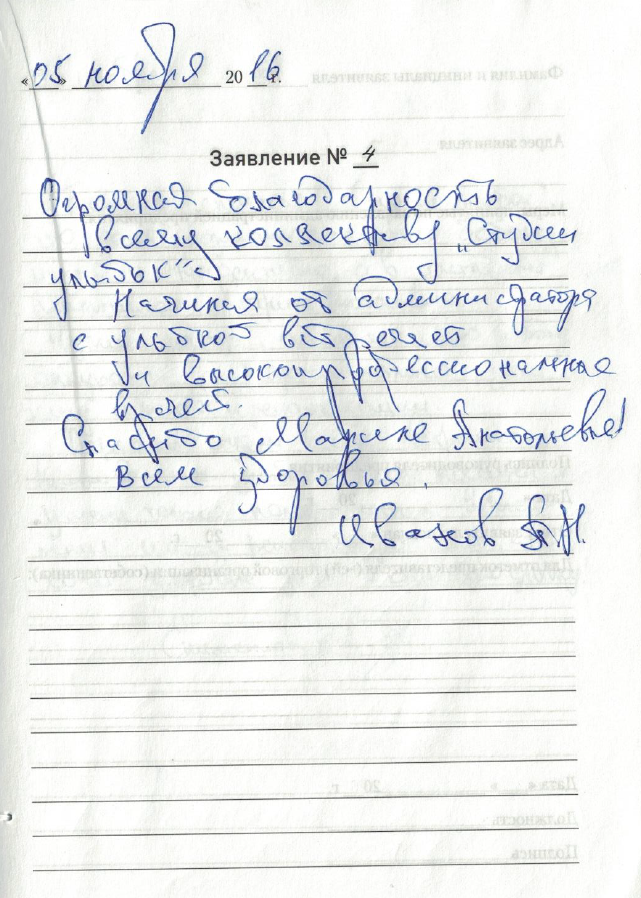 «05» ноября 2016 г.
Заявление № 4
Огромная благодарность
всему коллективу „Студии
улыбок“
Начиная от администратора
с улыбкой встречает
и высокопрофессиональные
врачей.
Спасибо Марине Анатольевне!
Всем здоровья.
Иванов А.Н.